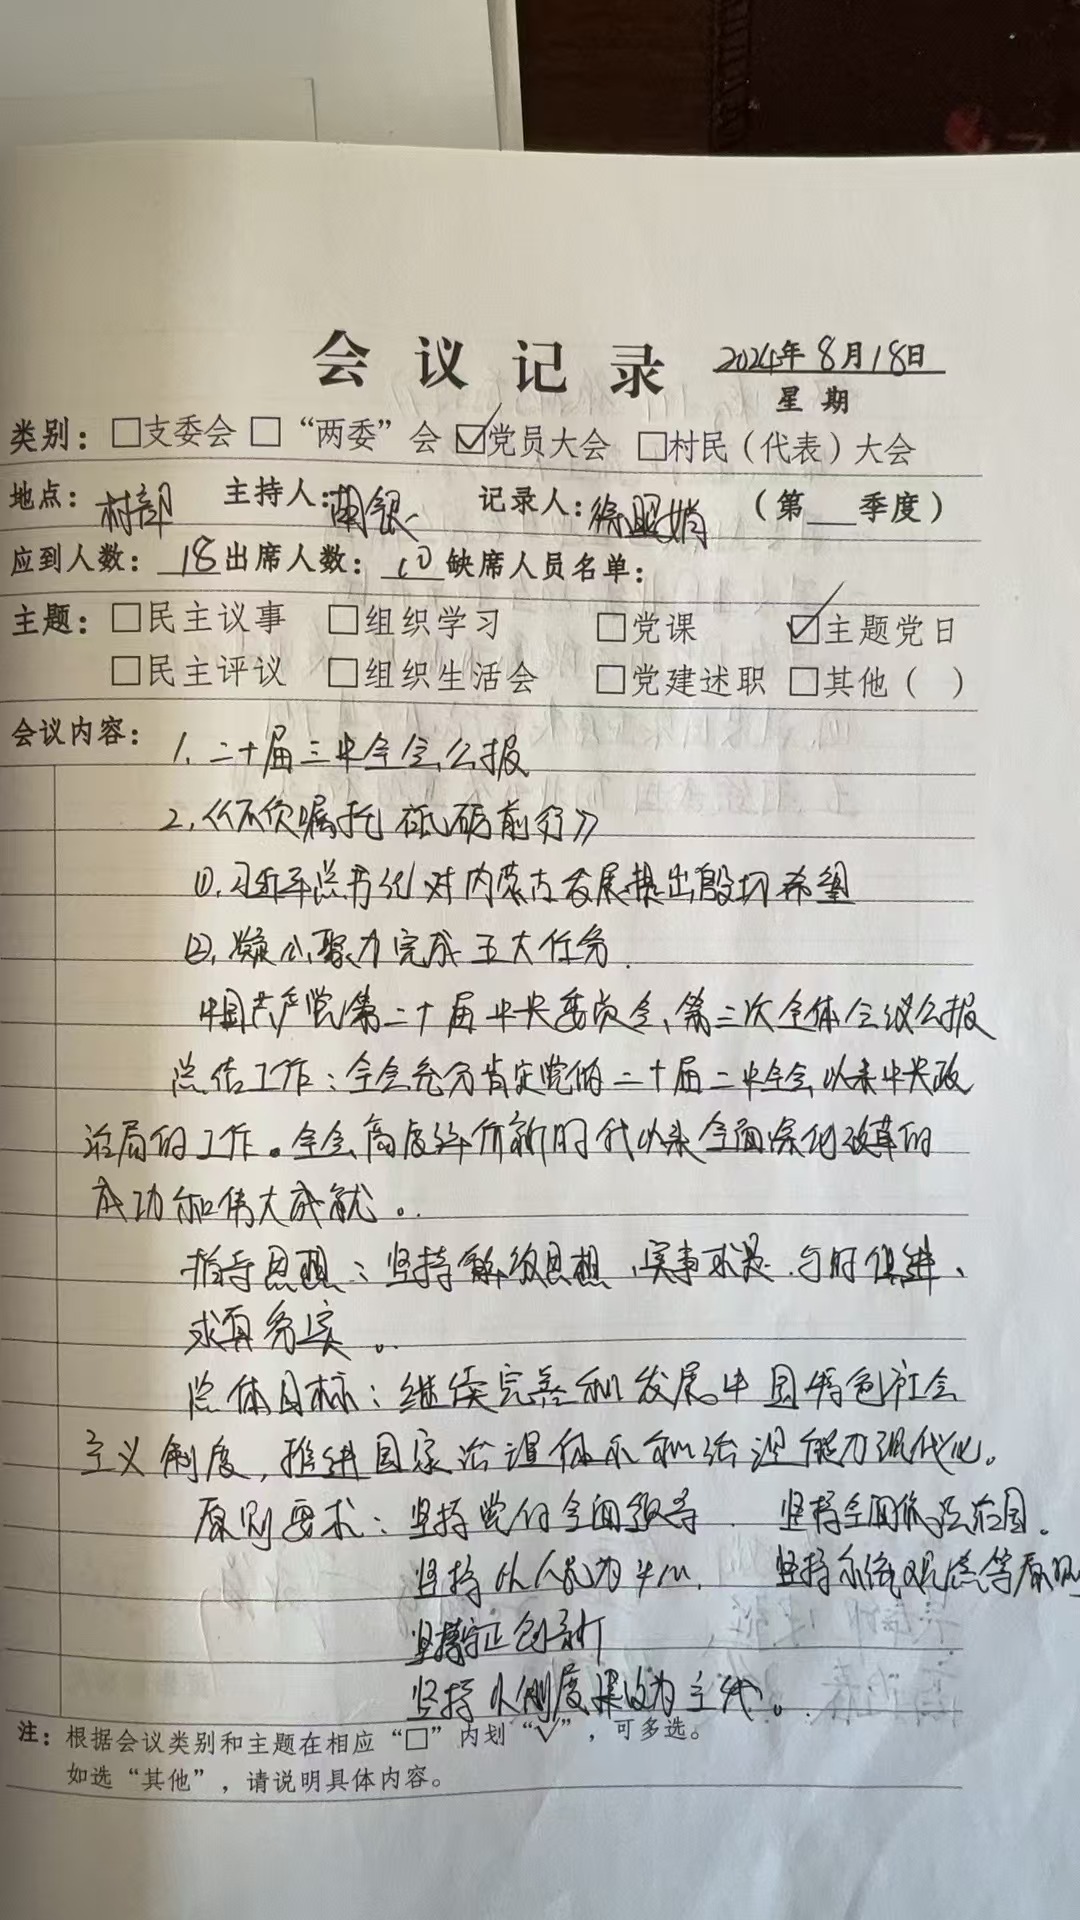 会议记录 2024年8月18日
星期
类别：□支委会 □“两委”会 ☑党员大会 □村民（代表）大会
地点：村部 主持人：银 记录人：徐明娟 （第 季度）
应到人数：18 出席人数：10 缺席人员名单：
主题：□民主议事 □组织学习 □党课 ☑主题党日
□民主评议 □组织生活会 □党建述职 □其他（ ）
会议内容：1. 二十届三中全会公报
2.《不负嘱托 砥砺前行》
①. 习近平总书记对内蒙古发展提出殷切希望
②. 凝心聚力完成五大任务.
中国共产党第二十届中央委员会第三次全体会议公报
总结工作：全会充分肯定党的二十届二中全会以来中央政
治局的工作。全会高度评价新时代以来全面深化改革的
成功和伟大成就。
指导思想：坚持解放思想、实事求是、与时俱进、
求真务实。
总体目标：继续完善和发展中国特色社会
主义制度，推进国家治理体系和治理能力现代化。
原则要求：坚持党的全面领导、坚持全面依法治国。
坚持以人民为中心、坚持系统观念等原则
坚持守正创新
坚持以制度建设为主线。
注：根据会议类别和主题在相应“□”内划“√”，可多选。
如选“其他”，请说明具体内容。